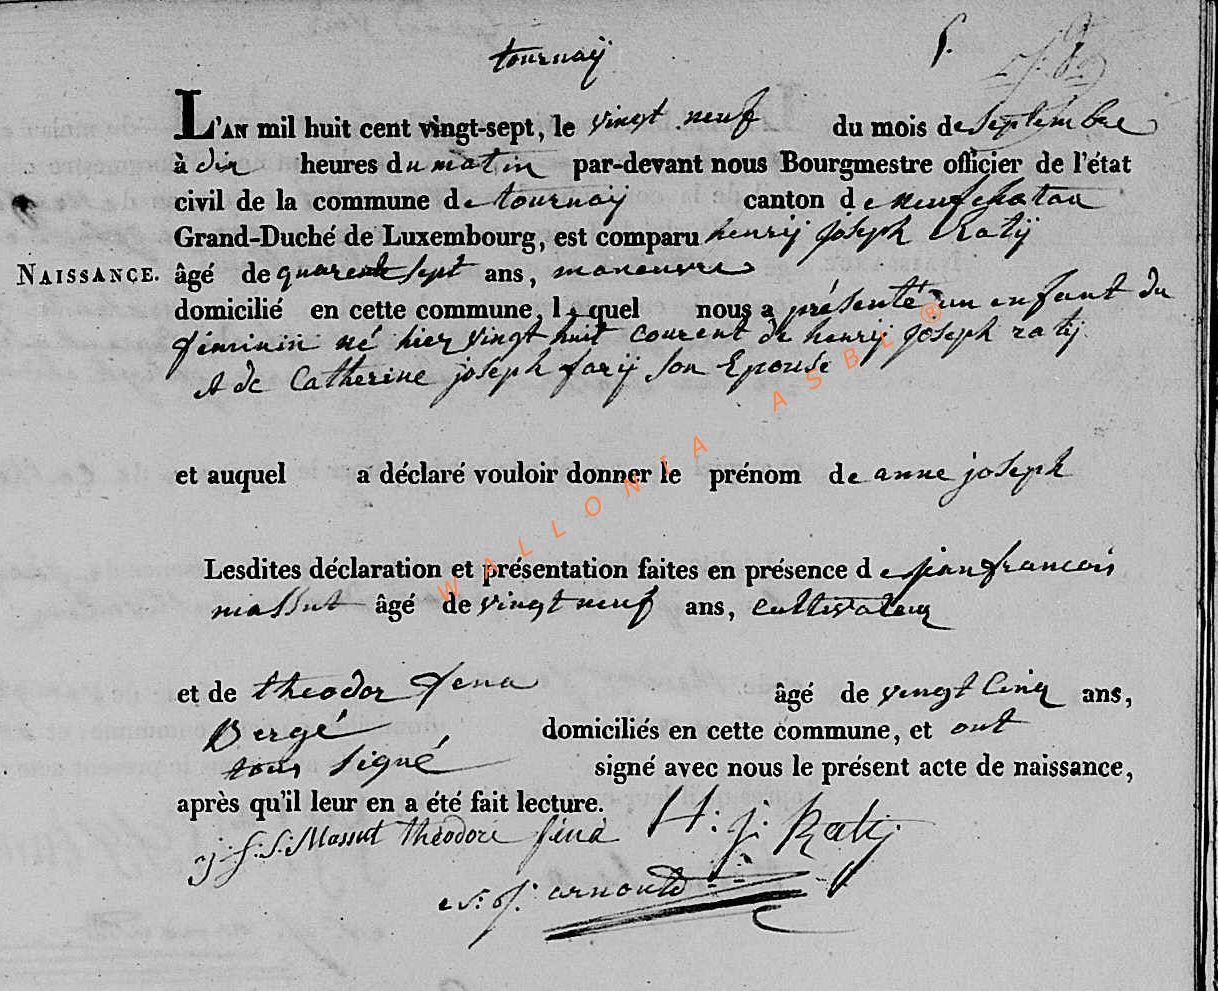 tournaÿ
L'AN mil huit cent vingt-sept, le vingt neuf du mois de septembre
à dix heures du matin par-devant nous Bourgmestre officier de l'état
civil de la commune de tournaÿ canton de neufchatau
Grand-Duché de Luxembourg, est comparu henrÿ joseph Ratÿ
NAISSANCE. âgé de quarente sept ans, maneuvre
domicilié en cette commune, lequel nous a présenté un enfant du
féminin né hier vingt huit courent de henrÿ joseph ratÿ
et de Catherine joseph farÿ son Epouse
et auquel a déclaré vouloir donner le prénom de anne joseph
Lesdites déclaration et présentation faites en présence de jean francois
massut âgé de vingt neuf ans, cultivateur
et de theodor fena âgé de vingt cinq ans,
Bergé domiciliés en cette commune, et ont
tous signé signé avec nous le présent acte de naissance,
après qu'il leur en a été fait lecture.
j. f. s. Massut théodore féna H: j: Ratÿ
arnould
WALLONIA ASBL ®